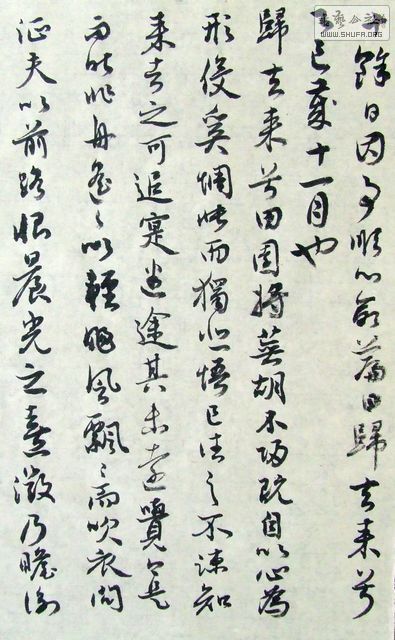 餘日因事順心命篇曰歸去来兮
巳歲十一月也
歸去来兮田園將蕪胡不歸既自以心為
形役奚惆悵而獨悲悟已往之不諫知
来者之可追寔迷途其未遠覺今是
而昨非舟遙々以輕颺風飄々而吹衣問
征夫以前路恨晨光之熹微乃瞻衡
WWW.SHUFA.ORG